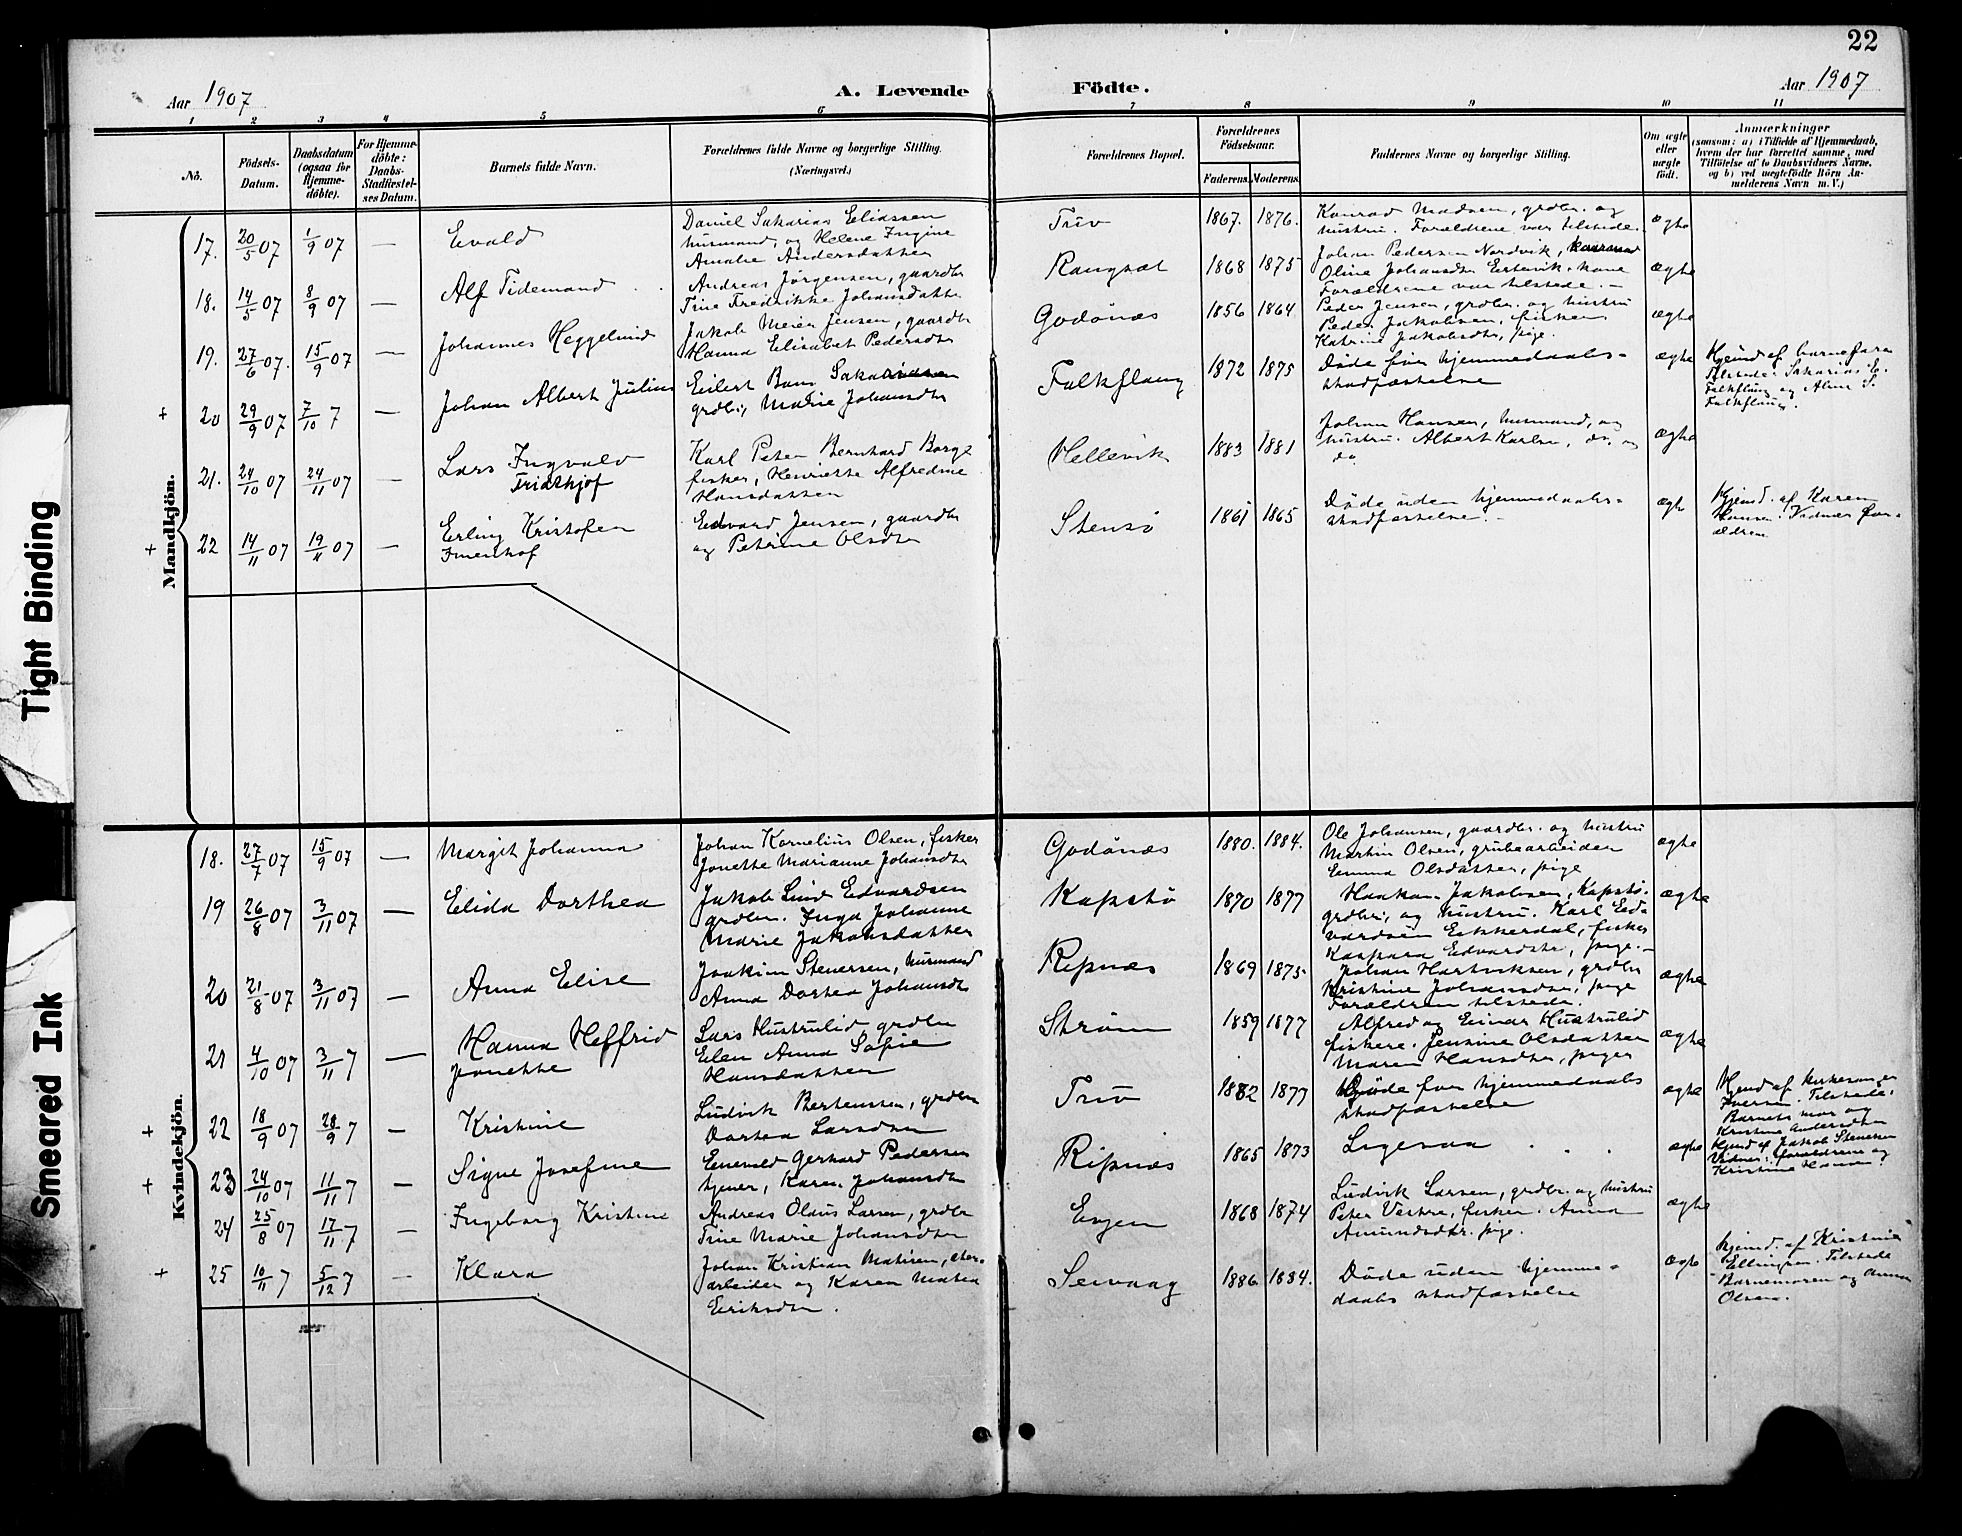 22
Aar 1907
A. Levende
Födte.
Aar 1907
1 2 3 4 5 6 7 8 9 10 11
No.
Födsels-
Datum.
Daabsdatum
(ogsaa for
Hjemme-
döbte).
For Hjemme-
döbte:
Daabs-
Stadfæstel-
ses Datum.
Barnets fulde Navn.
Forældrenes fulde Navne og borgerlige Stilling.
(Næringsvei.)
Forældrenes Bopæl.
Forældrenes
Födselsaar.
Faderens. Moderens.
Faddernes Navne og borgerlige Stilling.
Om ægte
eller
uægte
født.
Anmærkninger
(saasom: a) i Tilfælde af Hjemmedaab,
hvem der har forrettet samme, med
Tilföielse af to Daabsvidners Navne,
og b) ved uægtefödte Börn An-
melderens Navn m. V.)
Mandkjön.
17. 20/5 07 1/9 07 — Evald
Daniel Sakarias Eliassen
husmand, og Helene Ingine
Amalie Andersdatter
Trøv 1867. 1876.
Konrad Madsen, grdbr. og
hustru. Forældrene var tilstede.
ægte
18. 14/5 07 8/9 07 — Alf Tidemand
Andreas Jørgensen, gaardbr
Trine Fredrikke Johansdatter
1868 1875
Johan Pedersen Nordvik,
Oline Johansdtr kone
Forældrene var tilstede. —
ægte
19. 27/6 07. 15/9 07 — Johannes Heggelund
Jakob Meier Jensen, gaardbr
Hanna Elisabet Pedersdtr
Godønes 1856 1864
Peder Jensen, grdbr. og hustru
Peder Jakobsen, fisker
Katrine Jakobsdtr, pige.
ægte
+ 20 29/9 07 7/10 7 — Johan Albert Julius
Eilert Baus Sakariasen
grdbr, Marie Johansdtr
Falkflaug 1872 1875
Døde før hjemmedaabs-
stadfæstelse
ægte
Hjemd af barnefara
Tilstede: Sakarias E.
Falkflaug og Aline S.
Falkflaug.
21. 24/10 07 24/11 07 — Lars Ingvald
Fridthjof
Karl Peter Bernhard Borge
fisker, Henriette Alfredine
Hansdatter
Hellevik 1883 1881
Johan Hansen, husmand, og
hustru. Albert Karlsen, do, og
do.
ægte
+ 22 14/11 07 19/11 07 — Erling Kristofer
Imenhof
Edvard Jensen, gaardbr
og Petrine Olsdtr
Stensø 1861 1865
Døde uden hjemmedaabs-
stadfæstelse. —
ægte
Hjemd. af Karen
Hansen. Vidner for-
ældrene
Kvindekjön.
18. 27/7 07 15/9 07 — Margit Johanna
Johan Kornelius Olsen, fisker
Jonette Marianne Johansdtr
Godønes 1880. 1884.
Ole Johansen, gaardbr. og hustru
Martin Olsen, grubearbeider
Emma Olsdatter, pige
ægte
19 26/8 07 3/11 07 — Elida Dorthea
Jakob Lind Edvardsen
grdbr. Inga Johanne
Marie Jakobsdatter
Kapstø 1870 1877
Haakon Jakobsen, Kapstø.
grdbr, og hustru. Karl Ed-
vardsen Eikkerdal, fisker
Kaspara Edvardsdtr, pige. —
ægte
20 21/8 07 3/11 07 — Anna Elise
Joakim Stenersen, husmand
Anna Dortea Johansdtr
Ripnæs 1869 1875
Johan Hartviksen, grdbr
Kristine Johansdtr, pige
Forældrene tilstede.
ægte
21 4/10 07 3/11 7 — Hanna Heffrid
Jonette
Lars Hustrulid grdbr
Elen Anna Sofie
Hansdatter
Strøm 1859 1877
Alfred og Einar Hustrulid
fiskere. Jensine Olsdatter
Maren Hansdtr, piger
ægte
+ 22 18/9 07 28/9 7 — Kristine
Ludvik Bertensen, grdbr
Dortea Larsdtr
Trøv 1882 1877
Døde før hjemmedaabs
stadfæstelse
ægte
Hjemd af kirkesanger
Iversen. Tilstede:
Barnets mor og
Kristine Andersdtr
+ 23 24/10 07 11/11 7 — Signe Josefine
Enevold Gerhard Pedersen
tjener, Karen Johansdtr
Ripnæs 1865 1873
Ligesaa
ægte
Hjemd af Jakob Stenersen
Vidner: forældrene og
Kristine Hansen.
24 25/8 07 17/11 7 — Ingeborg Kristine
Andreas Olaus Larsen, grdbr
Trine Marie Johansdtr
Evjen 1868 1874
Ludvik Larsen, grdbr. og hustru
Peter Vestre, fisker. Anna
Amundsdtr. pige.
ægte
+ 25 10/11 7 5/12 7 — Klara
Johan Kristian Matisen,
arbeider og Karen Matea
Eriksdtr.
Seivaag 1886 1884.
Døde uden hjemme-
daabs stadfæstelse
ægte
Hjemd. af Kristine
Ellingsen. Tilstede
Barnemoren og Anna
Olsen.
Tight Binding
Smeared Ink